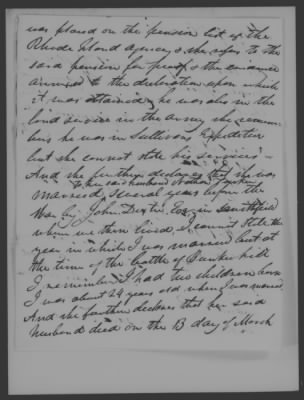 was placed on the pension list of the
Rhode Island Agency & she refers to the
said pension for proof & the evidence
annexed to the declaration upon which
it was obtained he was also in the
land service in the army she remem
bers he was in Sullivans Expedition
but she cannot state his services —
And she further declares that she was
to her said husband Nathan
married, several years before the
War by John Dexter Esq in Smithfield
where we then lived I cannot state the
year in which I was married but at
the time of the battle of Bunker hill
I remember I had two children born
I was about 24 years old when I was married
And she further declares that her said
husband died on the 13 day of March